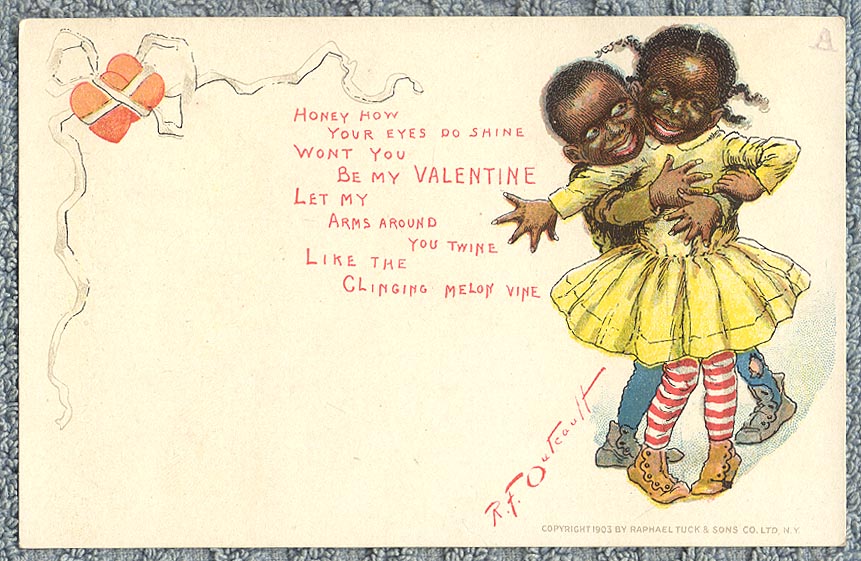 HONEY HOW
YOUR EYES DO SHINE
WONT YOU
BE MY VALENTINE
LET MY
ARMS AROUND
YOU TWINE
LIKE THE
CLINGING MELON VINE
R.F. Outcault
COPYRIGHT 1903 BY RAPHAEL TUCK & SONS CO. LTD, N.Y.